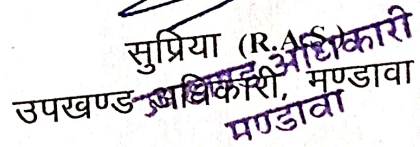 सुप्रिया (R.A.S.)
उपखण्ड अधिकारी, मण्डावा
उपखण्ड अधिकारी
मण्डावा